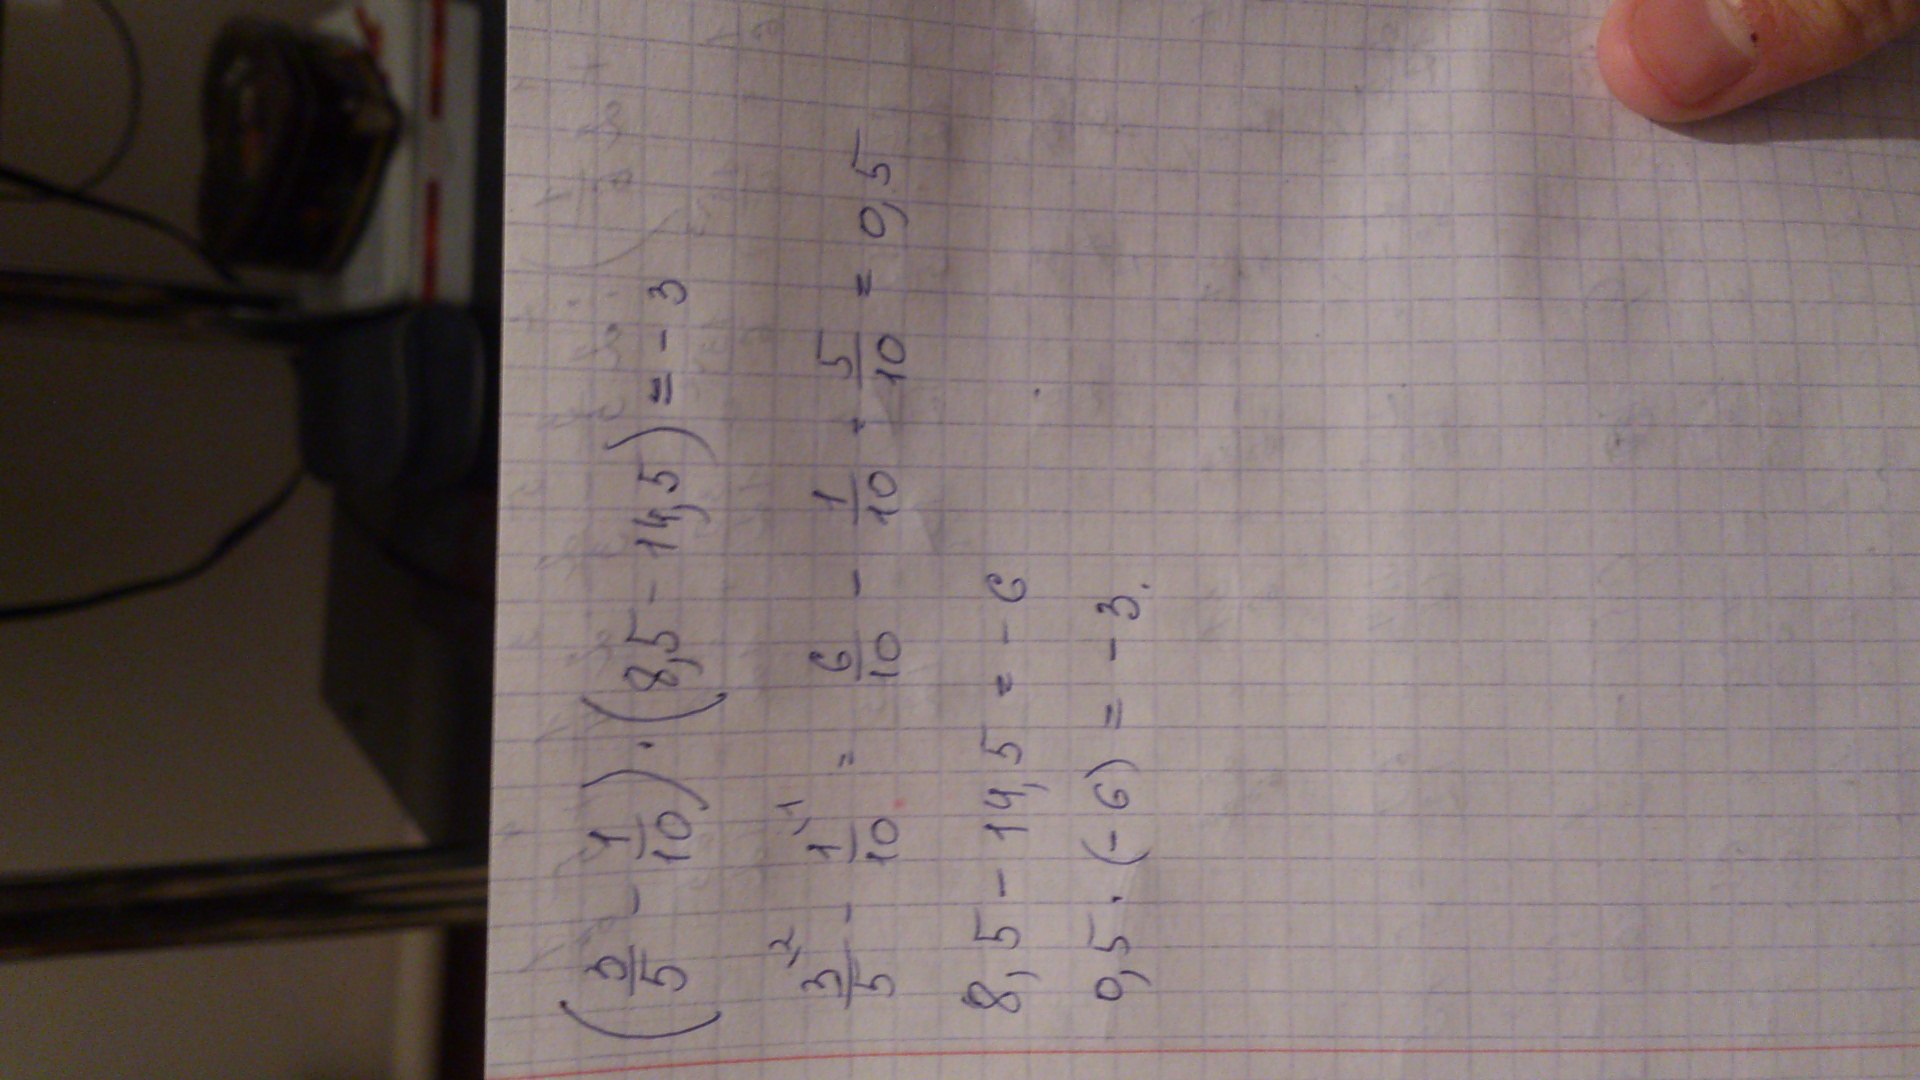 (3/5 - 1/10) · (8,5 - 14,5) = - 3
3/5 ² - 1/10 ¹ = 6/10 - 1/10 = 5/10 = 0,5
8,5 - 14,5 = - 6
0,5 · (-6) = - 3.